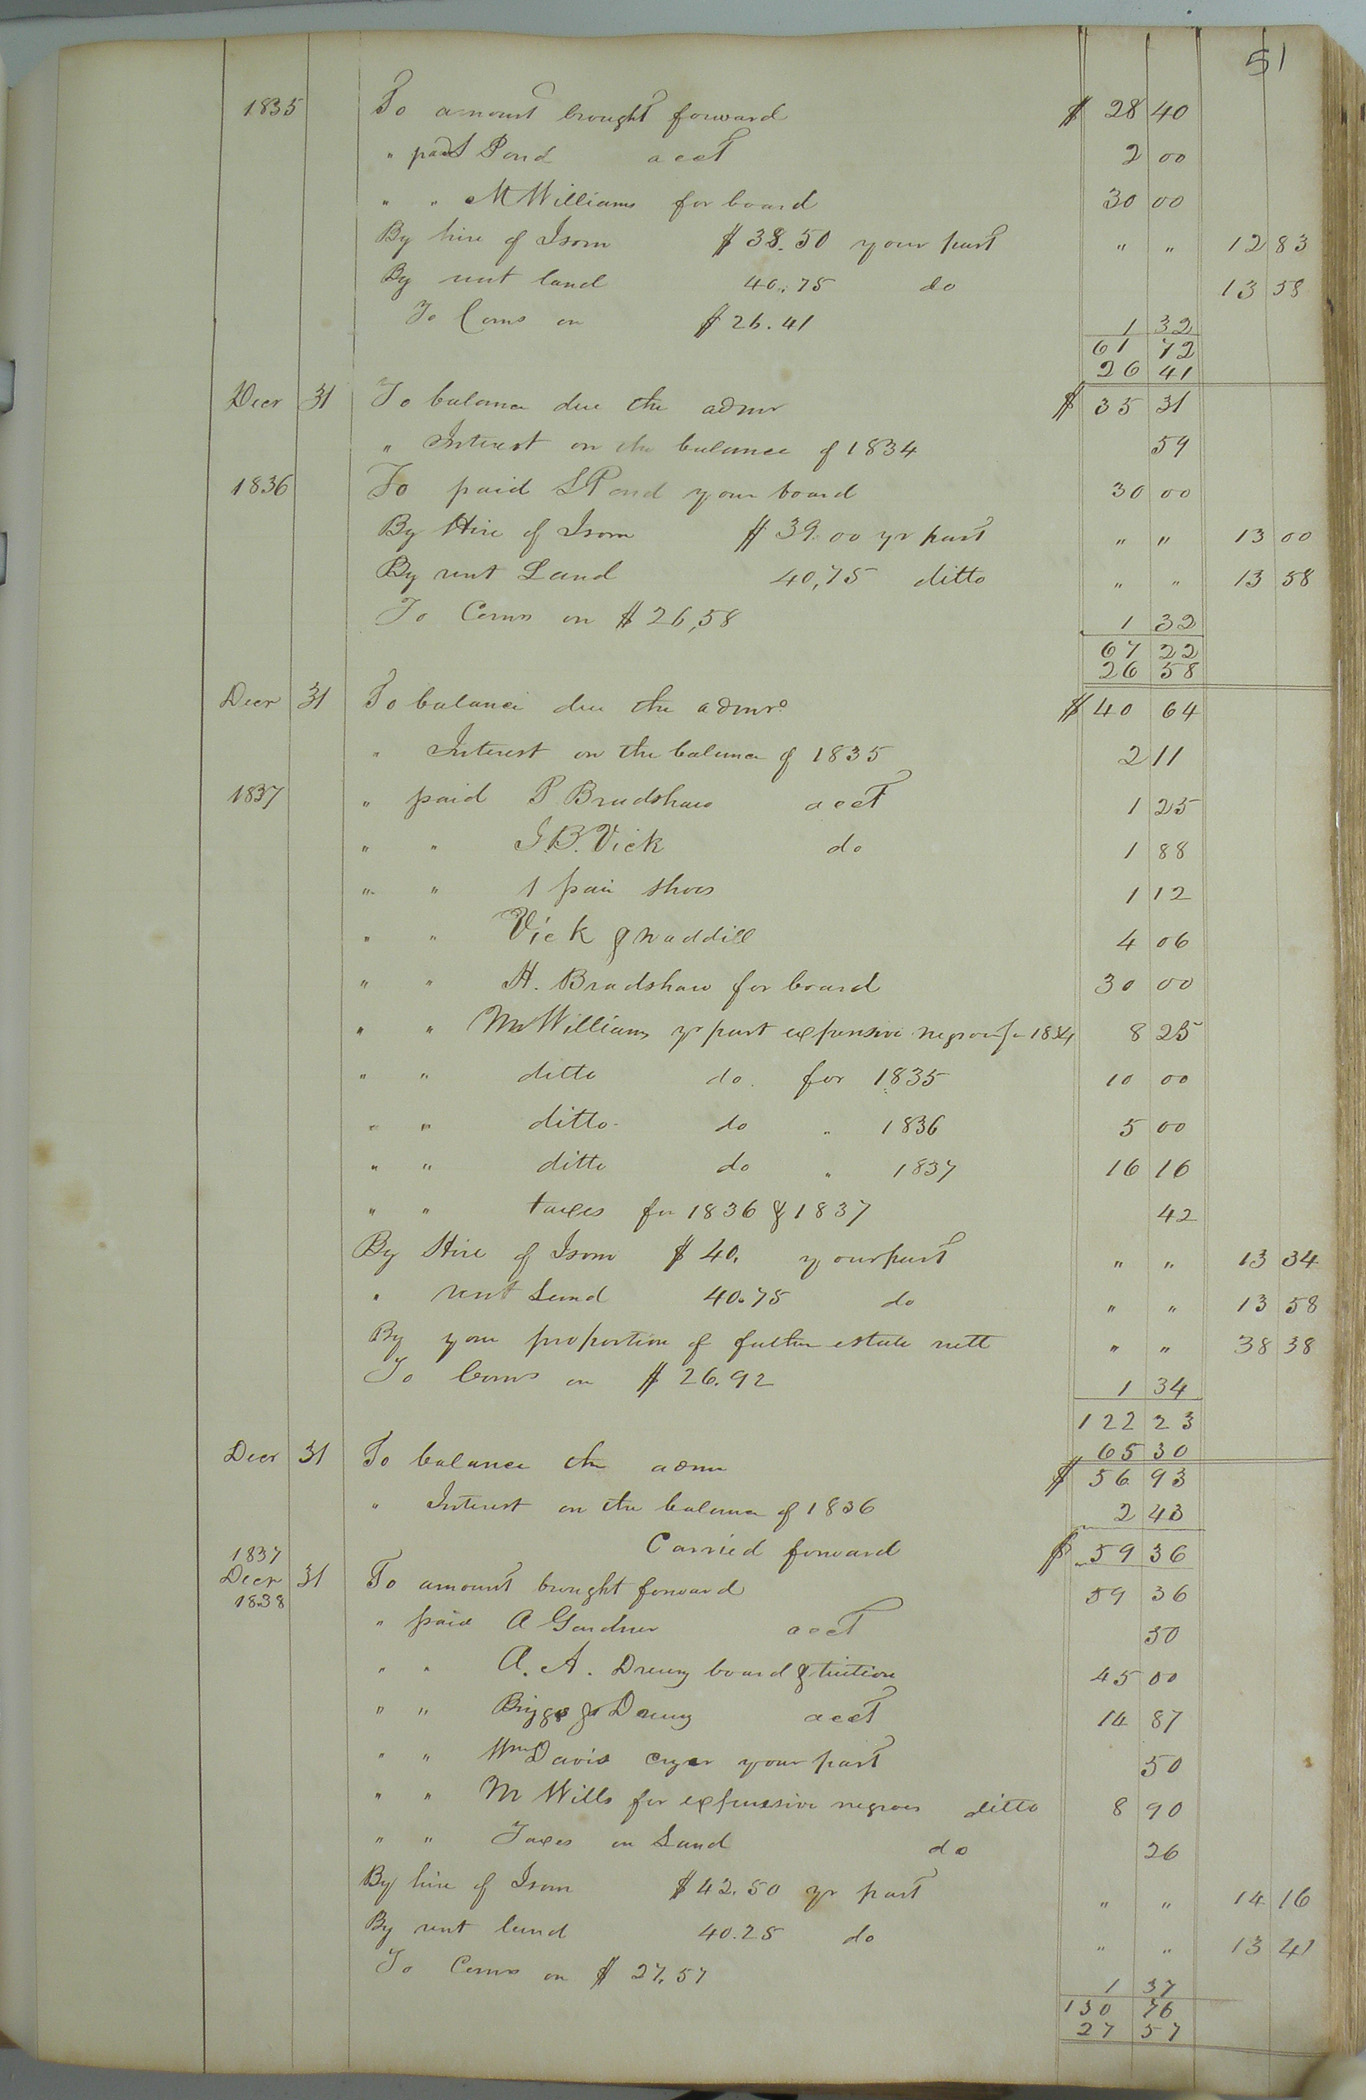 51
1835 To amount brought forward $ 28 40
" paid S Pond acct 2 00
" " M Williams for board 30 00
By hire of Isom $38.50 your part " " 12 83
By rent land 40.75 do 13 58
To Coms on $26.41 1 32
61 72
26 41
Decr 31 To balance due the admr $ 35 31
" Interest on the balance of 1834 59
1836 To paid S Pond your board 30 00
By Hire of Isom $39.00 yr part " " 13 00
By rent Land 40,75 ditto " " 13 58
To Coms on $26,58 1 32
67 22
26 58
Decr 31 To balance due the admr $ 40 64
" Interest on the balance of 1835 2 11
1837 " paid P Bradshaw acct 1 25
" " J B. Vick do 1 88
" " 1 pair shoes 1 12
" " Vick & Waddill 4 06
" " H. Bradshaw for board 30 00
" " M Williams yr part expensive negroes for 1834 8 25
" " ditto do. for 1835 10 00
" " ditto do " 1836 5 00
" " ditto do " 1837 16 16
" " taxes for 1836 & 1837 42
By Hire of Isom $40. your part " " 13 34
" rent Land 40.75 do " " 13 58
By your proportion of father estate nett " " 38 38
To Coms on $26.92 1 34
122 23
65 30
Decr 31 To balance the admr $ 56 93
" Interest on the balance of 1836 2 43
Carried forward $ 59 36
1837
Decr 31 To amount brought forward 59 36
1838
" paid A Gardner acct 50
" " A. A. Drewry board & tuition 45 00
" " Briggs & Drewry acct 14 87
" " Wm Davis cryer your part 50
" " M Wills for expensive negroes ditto 8 90
" " Taxes on Land do 26
By hire of Isom $42.50 yr part " " 14 16
By rent land 40.25 do " " 13 41
To Coms on $27.57 1 37
130 76
27 57